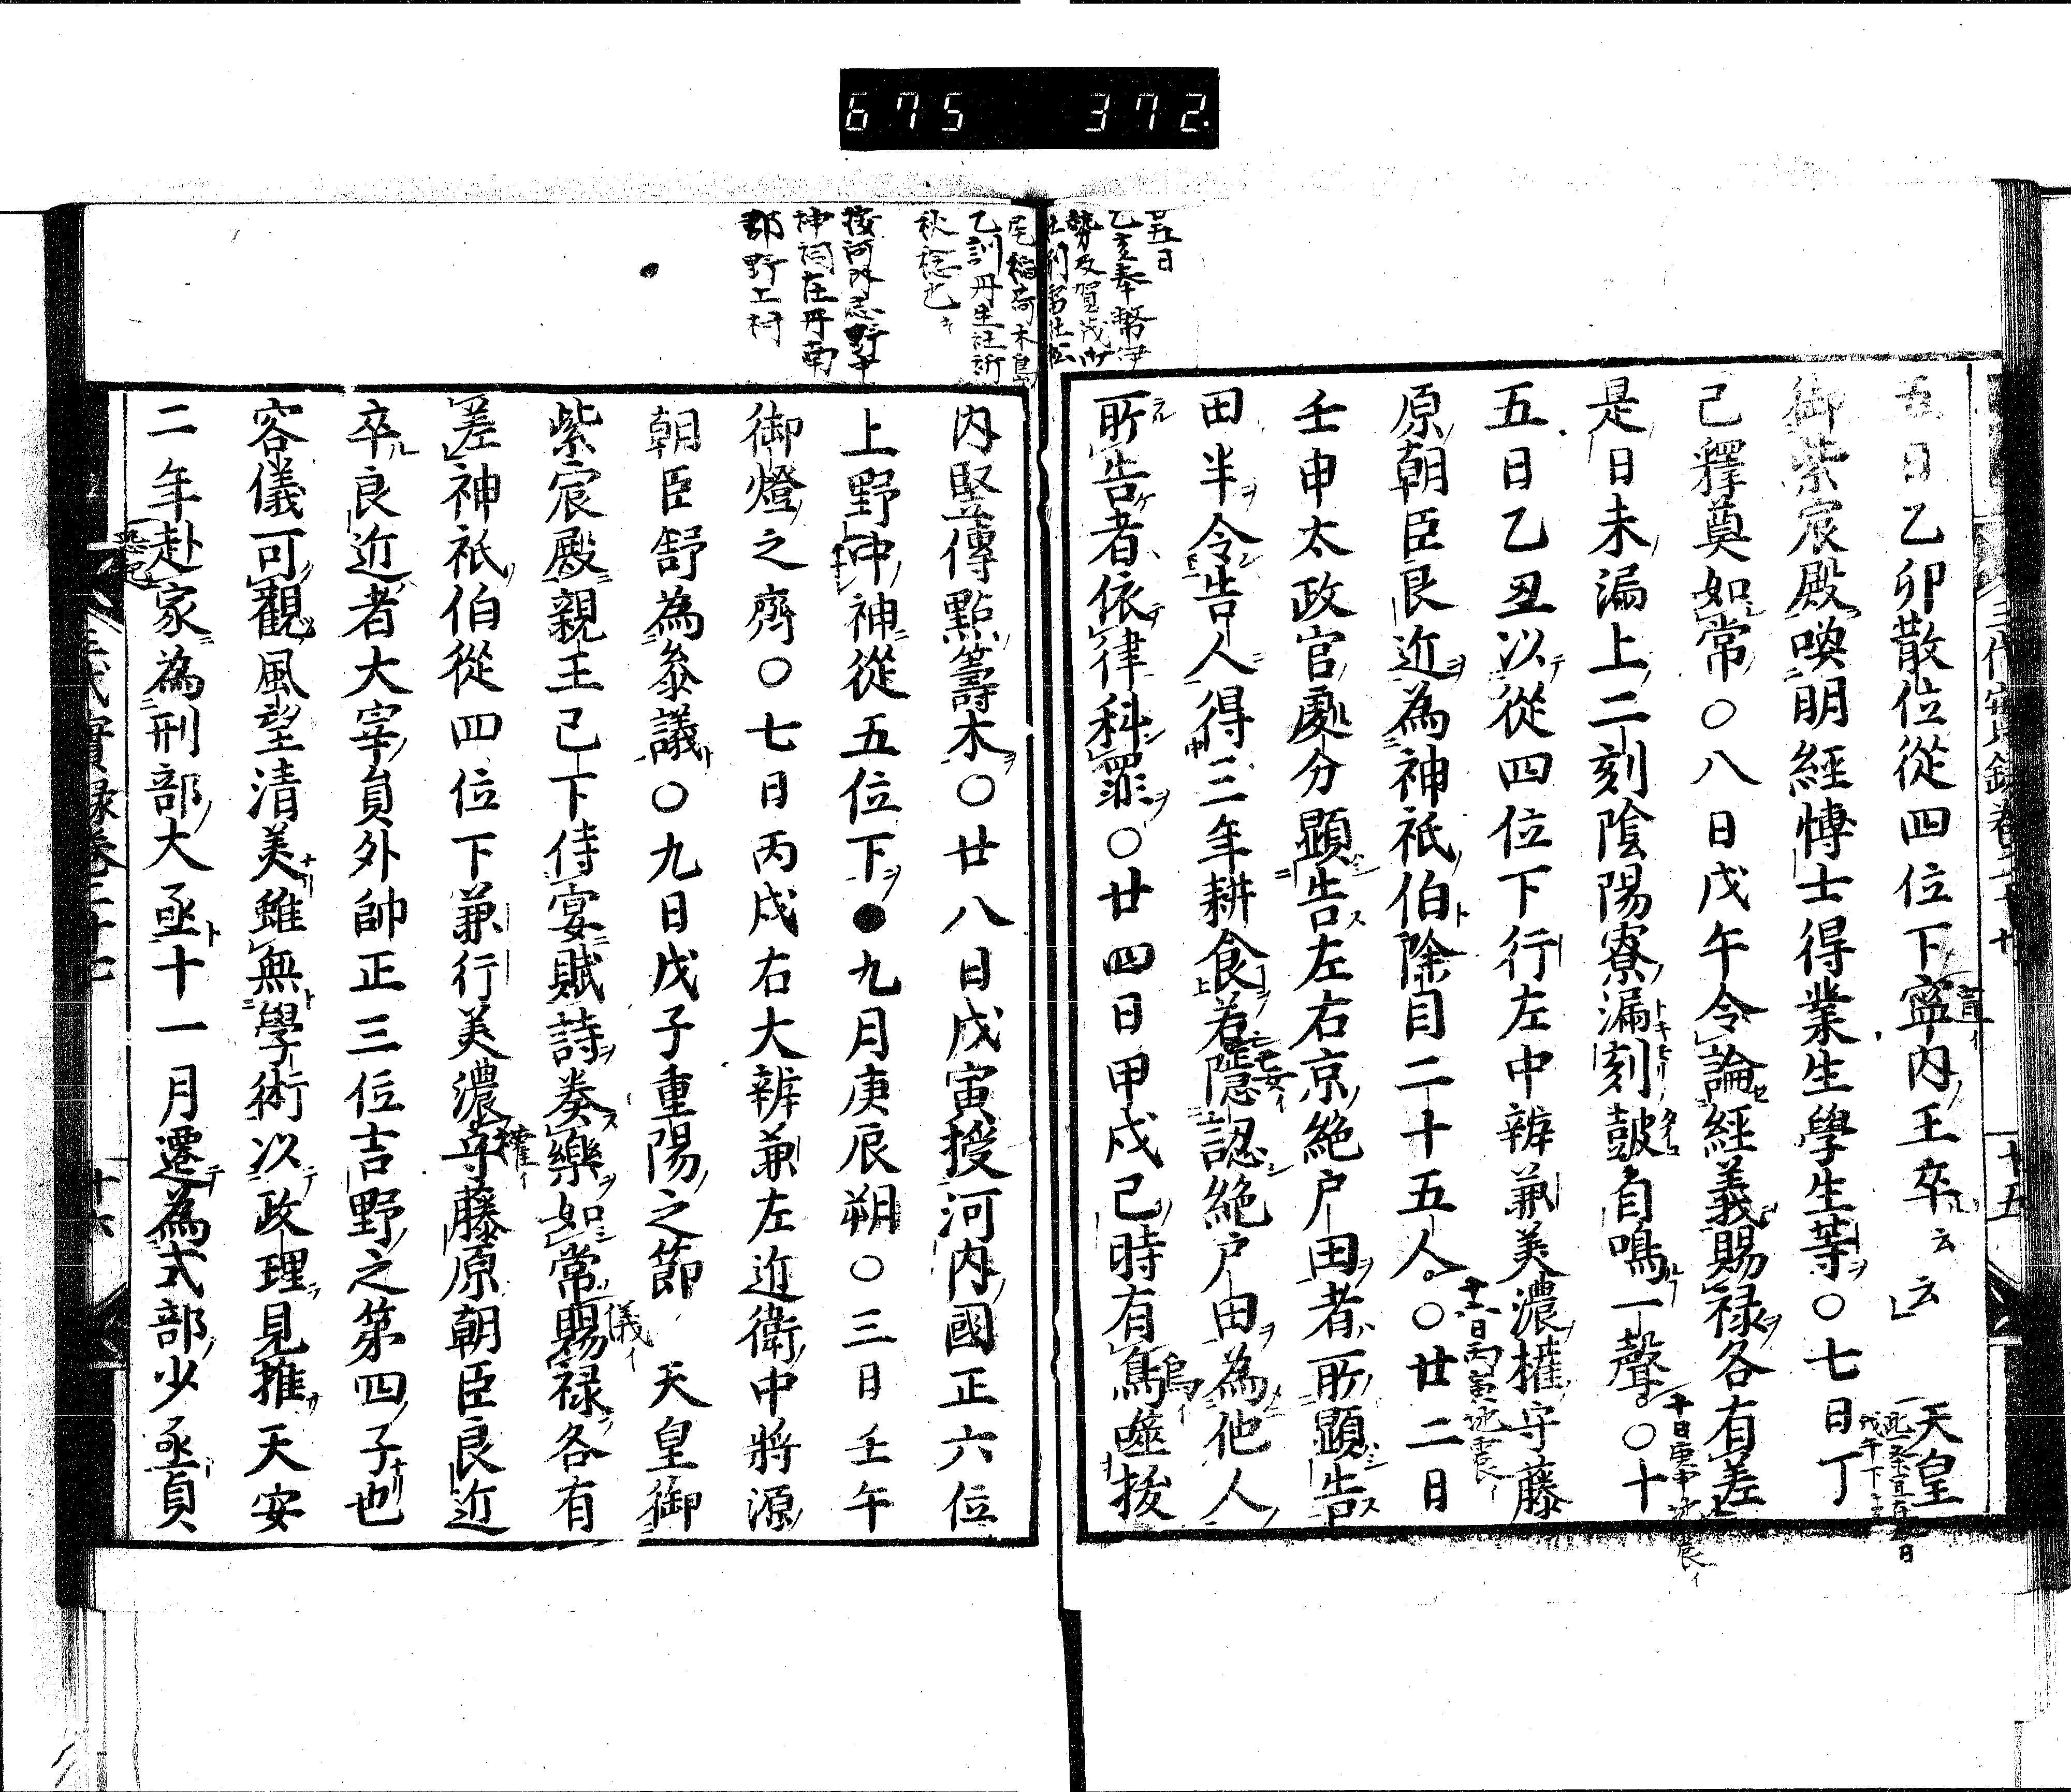 675 372.
廿五日
乙亥奉幣伊
勢及賀茂
尾稲荷木島
乙訓丹生社祈
秋稔也
按河外忌野中
神祠在丹南
郡野上村
十五
五日乙卯散位從四位下寧内王卒云云 天皇
御紫宸殿喚明經愽士得業生學生等〇七日丁
己釋奠如常〇八日戊午令論經義賜禄各有差
是日未漏上二刻陰陽寮漏刻皷自鳴一聲〇十
十日庚申地震イ
五日乙丑以從四位下行左中辨兼美濃權守藤
原朝臣良近為神祇伯除目二十五人〇廿二日
十六日丙寅地震イ
壬申太政官處分顯告左右京絶户田者所顯告
田半令告人得三年耕食若隱認絶户由為他人
所告者依律科罪〇廿四日甲戌己時有鳥噬拔
烏イ
内竪傳點籌木〇廿八日戊寅授河内國正六位
上野中神從五位下●九月庚辰朔〇三日壬午
御燈之齊〇七日丙戌右大辨兼左近衛中將源
朝臣舒為叅議〇九日戊子重陽之節 天皇御
紫宸殿親王己下侍宴賦詩奏樂如常賜禄各有
儀イ
差神祇伯從四位下兼行美濃守藤原朝臣良近
權イ
卒良近者大宰員外帥正三位吉野之第四子也
容儀可觀風望清美雖無學術以政理見推天安
二年赴家為刑部大丞十一月遷為式部少丞貟
三代實録卷二十七
十六